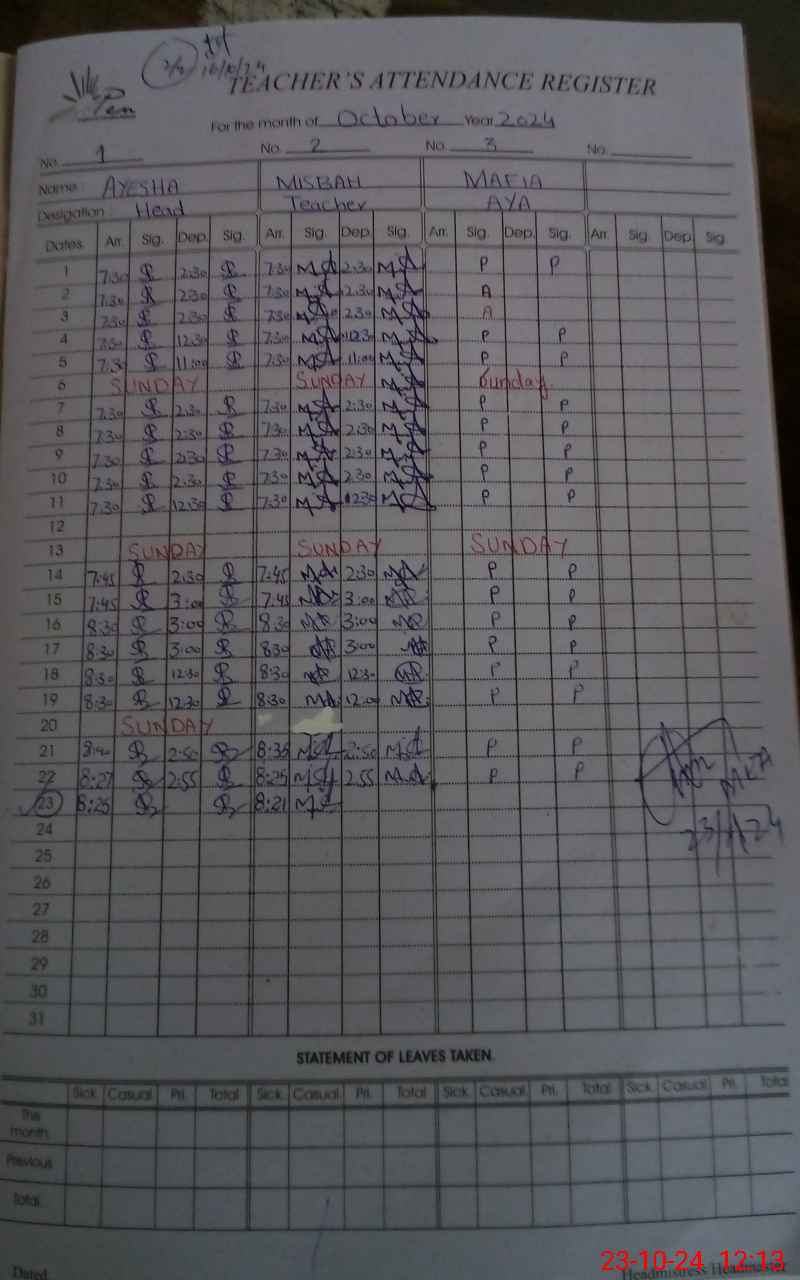 2/4 16/10/24
Pen
TEACHER'S ATTENDANCE REGISTER
For the month of October Year 2024
No. 1 No. 2 No. 3 No.
Name: AYESHA MISBAH MAFIA
Designation: Head Teacher AYA
Dates Arr. Sig. Dep. Sig. Arr. Sig. Dep. Sig. Arr. Sig. Dep. Sig. Arr. Sig. Dep. Sig.
1 7:30 2:30 7:30 2:30 P P
2 7:30 2:30 7:30 2:30 A
3 7:30 2:30 7:30 2:30 A
4 7:30 12:30 7:30 12:30 P P
5 7:30 11:00 7:30 11:00 P P
6 SUNDAY SUNDAY Sunday
7 7:30 2:30 7:30 2:30 P P
8 7:30 2:30 7:30 2:30 P P
9 7:30 2:30 7:30 2:30 P P
10 7:30 2:30 7:30 2:30 P P
11 7:30 12:30 7:30 12:30 P P
12
13 SUNDAY SUNDAY SUNDAY
14 7:45 2:30 7:45 2:30 P P
15 7:45 3:00 7:45 3:00 P P
16 8:30 3:00 8:30 3:00 P P
17 8:30 3:00 8:30 3:00 P P
18 8:30 12:30 8:30 12:30 P P
19 8:30 12:30 8:30 12:00 P P
20 SUNDAY
21 2:50 8:35 2:50 P P
22 8:27 2:55 8:25 2:55 P P
23 8:25 8:21
MEA
24
23/10/24
25
26
27
28
29
30
31
STATEMENT OF LEAVES TAKEN.
Sick. Casual. Pri. Total Sick. Casual. Pri. Total Sick. Casual. Pri. Total Sick. Casual. Pri. Total
This month.
Previous
Total.
Dated Headmistress Headmaster
23-10-24 12:13